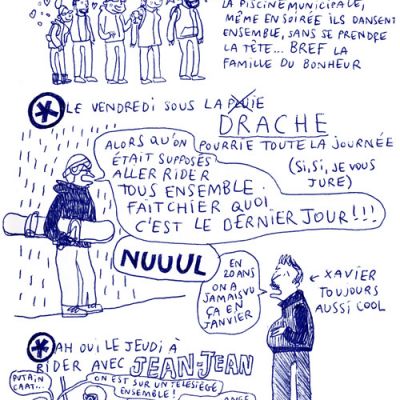 LA PISCINE MUNICIPALE,
MÊME EN SOIRÉE ILS DANSENT
ENSEMBLE, SANS SE PRENDRE
LA TÊTE... BREF LA
FAMILLE DU BONHEUR
* LE VENDREDI SOUS LA PLUIE
DRACHE
POURRIE TOUTE LA JOURNÉE
(SI, SI, JE VOUS
JURE)
ALORS QU'ON
ÉTAIT SUPPOSÉS
ALLER RIDER
TOUS ENSEMBLE.
FAIT CHIER QUOI
C'EST LE DERNIER JOUR!!!
NUUUL
EN
20 ANS
ON A
JAMAIS VU
ÇA EN
JANVIER
← XAVIER
TOUJOURS
AUSSI COOL
* AH OUI LE JEUDI À
RIDER AVEC JEAN-JEAN
PUTAIN
ON EST SUR UN TÉLÉSIÈGE
ENSEMBLE!